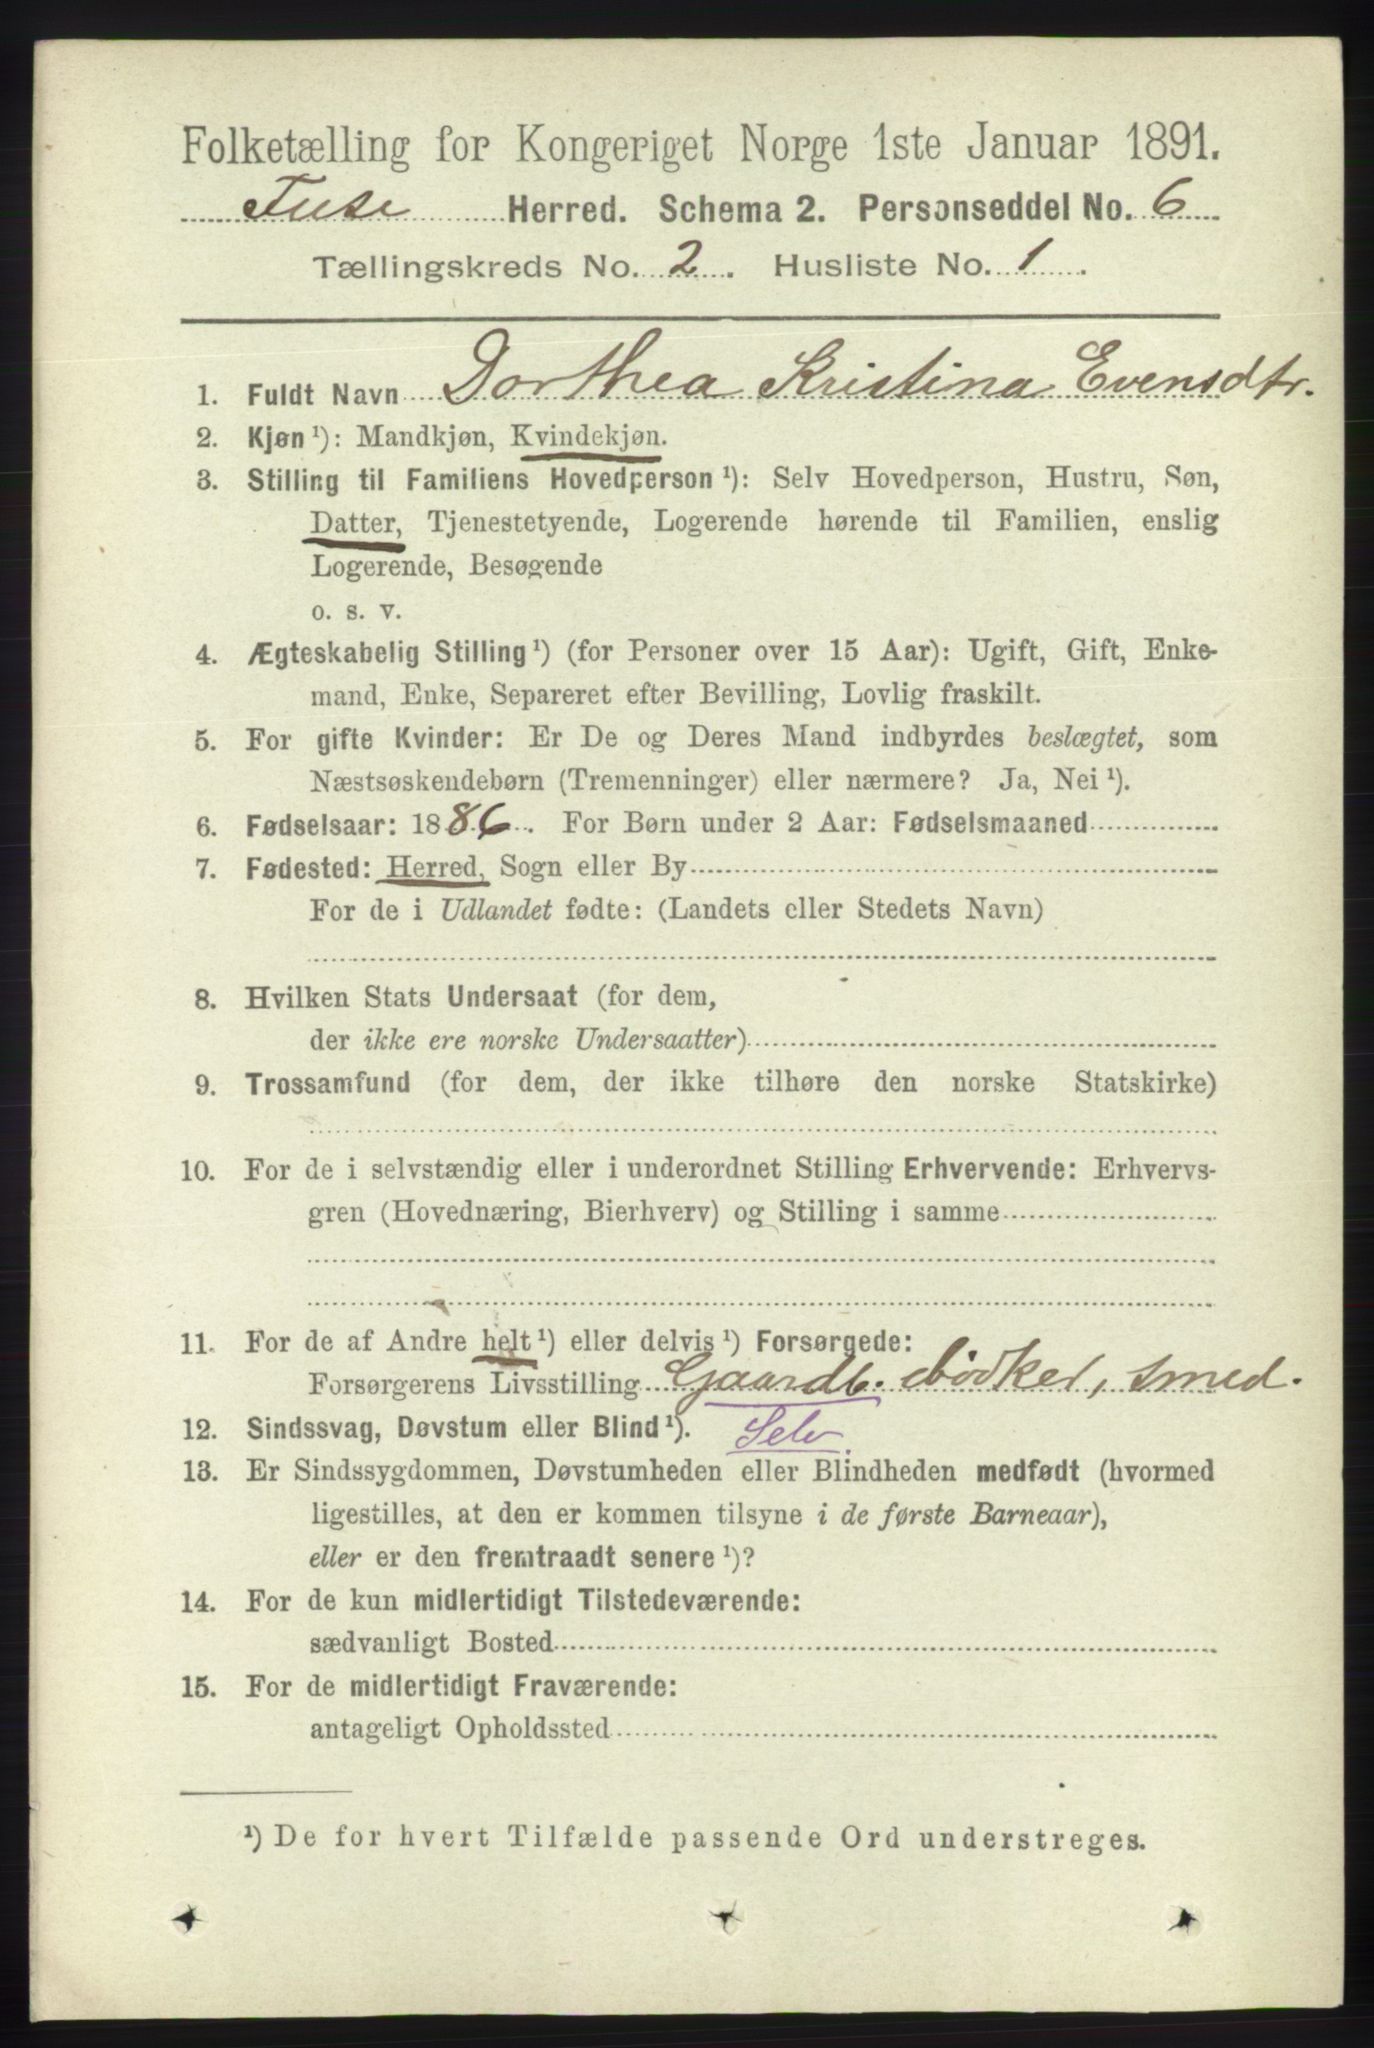 Folketælling for Kongeriget Norge 1ste Januar 1891.
Fuse Herred. Schema 2. Personseddel No. 6
Tællingskreds No. 2. Husliste No. 1.
1. Fuldt Navn Dorthea Kristina Evensdtr.
2. Kjøn ¹): Mandkjøn, Kvindekjøn.
3. Stilling til Familiens Hovedperson ¹): Selv Hovedperson, Hustru, Søn,
Datter, Tjenestetyende, Logerende hørende til Familien, enslig
Logerende, Besøgende
o. s. v.
4. Ægteskabelig Stilling ¹) (for Personer over 15 Aar): Ugift, Gift, Enke-
mand, Enke, Separeret efter Bevilling, Lovlig fraskilt.
5. For gifte Kvinder: Er De og Deres Mand indbyrdes beslægtet, som
Næstsøskendebørn (Tremenninger) eller nærmere? Ja, Nei ¹).
6. Fødselsaar: 1886. For Børn under 2 Aar: Fødselsmaaned
7. Fødested: Herred, Sogn eller By
For de i Udlandet fødte: (Landets eller Stedets Navn)
8. Hvilken Stats Undersaat (for dem,
der ikke ere norske Undersaatter)
9. Trossamfund (for dem, der ikke tilhøre den norske Statskirke)
10. For de i selvstændig eller i underordnet Stilling Erhvervende: Erhvervs-
gren (Hovednæring, Bierhverv) og Stilling i samme
11. For de af Andre helt ¹) eller delvis ¹) Forsørgede:
Forsørgerens Livsstilling Gaardb. bødker, smed.
12. Sindssvag, Døvstum eller Blind ¹). Selv.
13. Er Sindssygdommen, Døvstumheden eller Blindheden medfødt (hvormed
ligestilles, at den er kommen tilsyne i de første Barneaar),
eller er den fremtraadt senere ¹)?
14. For de kun midlertidigt Tilstedeværende:
sædvanligt Bosted
15. For de midlertidigt Fraværende:
antageligt Opholdssted
¹) De for hvert Tilfælde passende Ord understreges.